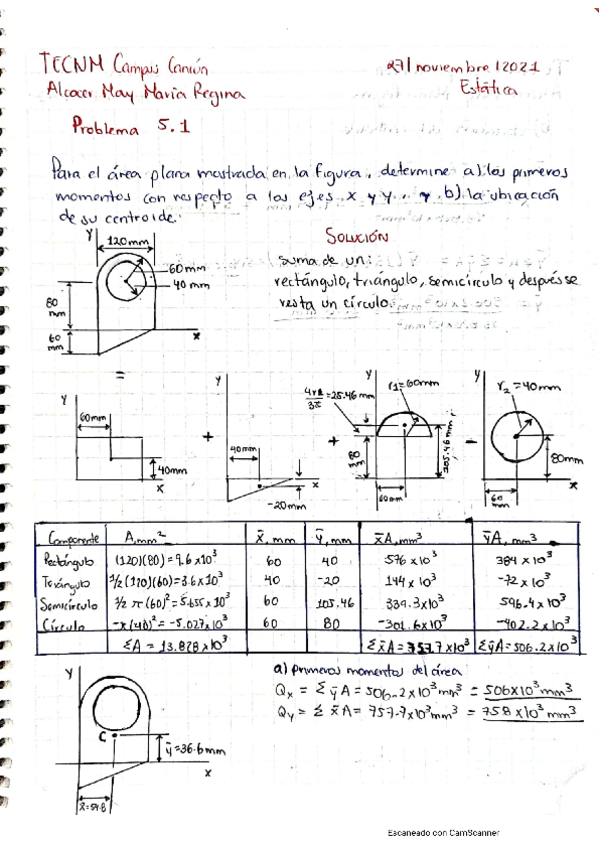 TECNM Campus Cancún
27/noviembre/2021
Alcocer May María Regina
Estática
Problema 5.1
Para el área plana mostrada en la figura, determine a) los primeros
momentos con respecto a los ejes x y y, y b) la ubicación
de su centroide.
Solución
Suma de un:
rectángulo, triángulo, semicírculo y después se
resta un círculo.
y
120mm
60mm
40mm
80 mm
60 mm
x
=
y
60mm
40mm
x
+
y
40mm
-20mm
x
+
y
4r1/3π = 25.46 mm
r1=60mm
80 mm
105.46 mm
60mm
x
-
y
r2=40mm
80mm
60 mm
x
Componente A, mm² x̄, mm ȳ, mm x̄A, mm³ ȳA, mm³
Rectángulo (120)(80)=9.6x10³ 60 40 576x10³ 384x10³
Triángulo ½(120)(60)=3.6x10³ 40 -20 144x10³ -72x10³
Semicírculo ½π(60)²=5.655x10³ 60 105.46 339.3x10³ 596.4x10³
Círculo -π(40)²=-5.027x10³ 60 80 -301.6x10³ -402.2x10³
ΣA = 13.828x10³ Σx̄A=757.7x10³ ΣȳA=506.2x10³
a) primeros momentos del área
Qx = ΣȳA=506.2x10³mm³ = 506x10³mm³
Qy = Σx̄A=757.7x10³mm³ = 758x10³mm³
y
C
ȳ=36.6mm
x
x̄=54.8
Escaneado con CamScanner